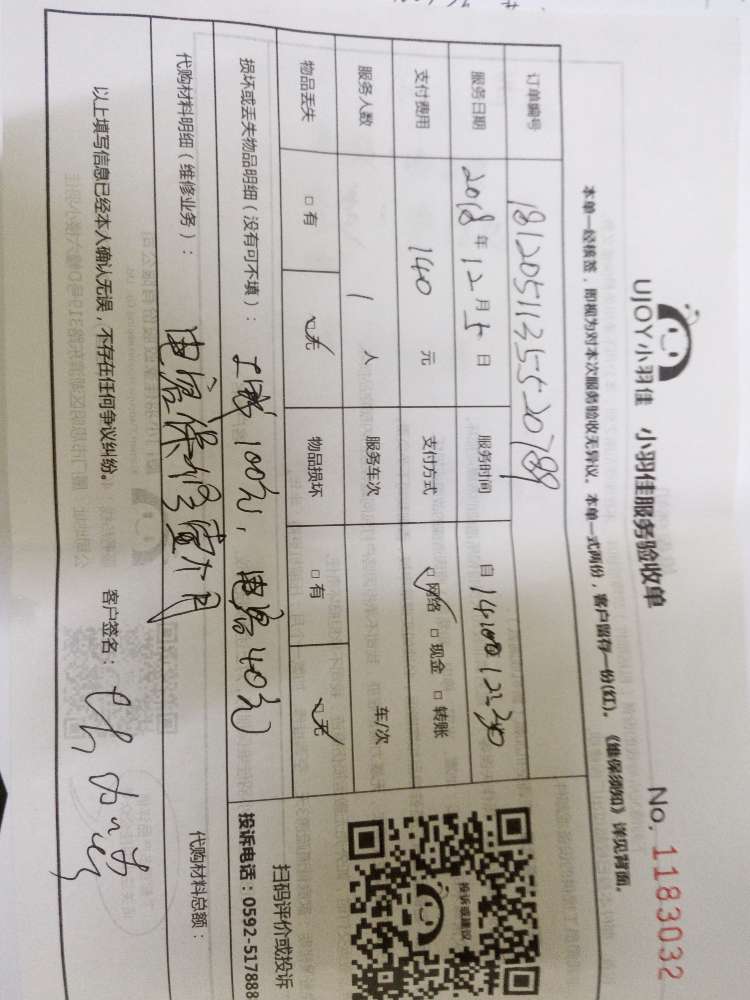 UJOY小羽佳 小羽佳服务验收单
No. 1183032
本单一经核签，即视为对本次服务验收无异议。本单一式两份，客户留存一份(红)。《维保须知》详见背面。
订单编号 181205113555520789
服务日期 2018年12月5日 服务时间 自
支付费用 140 元 支付方式 ☑网络 □现金 □转账
服务人数 1 人 服务车次 车/次
物品丢失 □有 ☑无 物品损坏 □有 ☑无
投诉或建议
扫码评价或投诉
投诉电话：0592-517888
损坏或丢失物品明细（没有可不填）： 100元, 电容40元
代购材料明细（维修业务）： 电容保修 个月
代购材料总额：
以上填写信息已经本人确认无误，不存在任何争议纠纷。 客户签名：